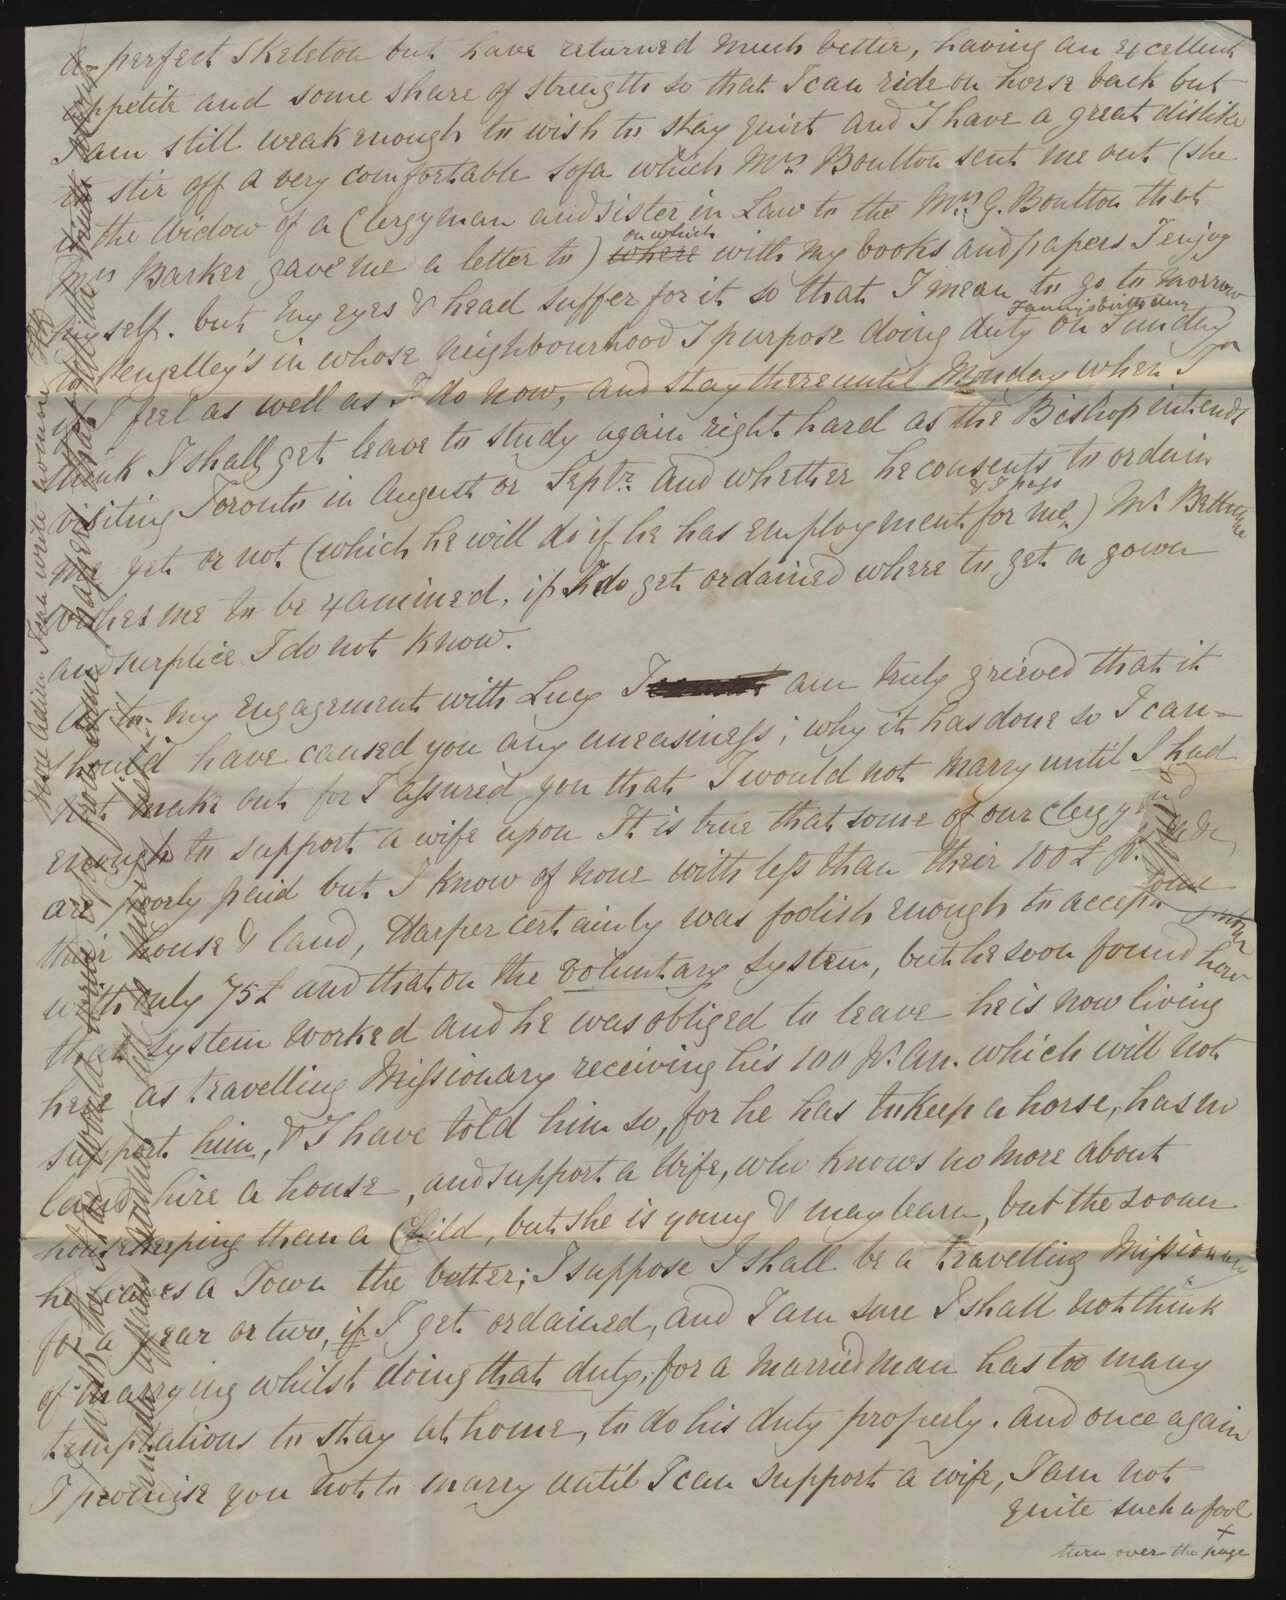 a perfect Skeleton but have returned much better, having an excellent
appetite and some share of strength so that I can ride on horse back but
I am still weak enough to wish to stay quiet and I have a great dislike
to stir off a very comfortable sofa which Mrs Boulton sent me out (she
is the Widow of a Clergyman and Sister in Law to the Mrs G. Boulton that
Mrs Barker gave me a letter to) where on which with my books and papers I enjoy
myself. but my eyes & head suffer for it so that I mean to go to morrow
to Pengelley's in whose neighbourhood I purpose doing duty on Sunday Fanny's birthday
if I feel as well as I do now, and stay there until Monday when I
think I shall get leave to study again right hard as the Bishop intends
visiting Toronto in August or Septr. and whether he consents to ordain
me yet or not (which he will do if he has employment for me & I pass) Mr Bethune
wishes me to be examined. if I do get ordained where to get a gown
and surplice I do not know.
As to my engagement with Lucy I am truly grieved that it
should have caused you any uneasiness; why it has done so I can-
not make out for I assured you that I would not marry until I had
enough to support a wife upon It is true that some of our clergy
are poorly paid but I know of none with less than their 100£
their house & land, Harper certainly was foolish enough to accept
with only 75£ and that on the voluntary system, but he soon found how
that system worked and he was obliged to leave he is now living
here as travelling Missionary receiving his 100 pr. an. which will not
support him, & I have told him so, for he has to keep a horse, has no
land, hire a house, and support a Wife, who knows no more about
housekeeping than a Child, but she is young & may learn, but the sooner
he leaves a Town the better; I suppose I shall be a travelling Missionary
for a year or two, if I get ordained, and I am sure I shall not think
of marrying whilst doing that duty, for a married man has too many
temptations to stay at home, to do his duty properly. and once again
I promise you not to marry until I can support a wife, I am not
quite such a fool
+
turn over the page